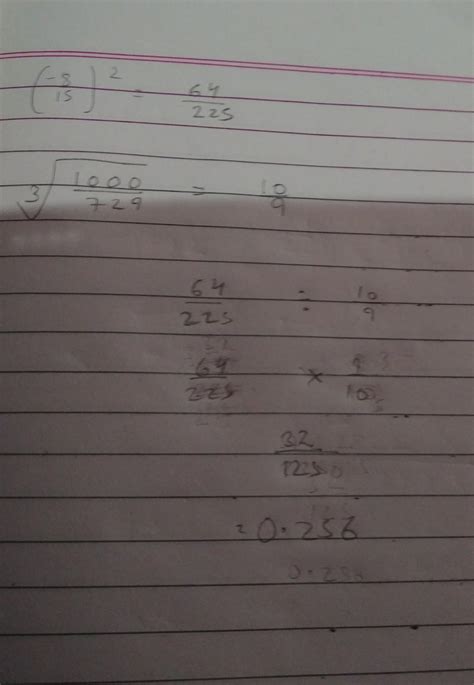 (-8/15)² = 64/225
³√(1000/729) = 10/9
64/225 ÷ 10/9
64/225 × 9/10
32/125
= 0.256
0.256